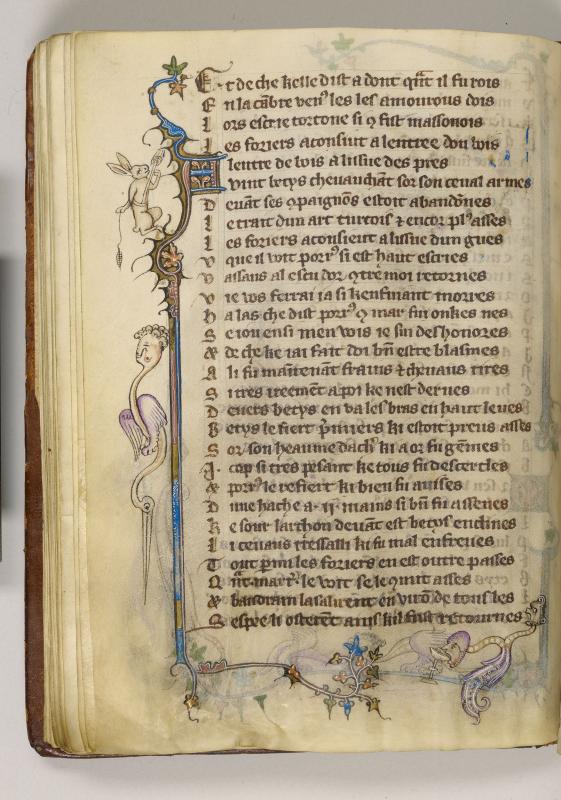 Et de che kelle dist a dont qnt il fu rois
En la cābre ven⁹ les les amourous dois
Lors escrie tortone si ꝯ fust massonois
Les foriers aconsiut a lentree dou bois
lentre de bois a lissue des pres
vint betys chevauchāt sor son ceval armes
Devāt ses ꝯpaignōs estoit abandōnes
Le trait dun art turcois & encor pl⁹ asses
Les foriers aconsieut a lissue dun gues
v que il voit porr⁹ si est haut escries
vassaus al escu dor ꝯtre moi retornes
v ie vos ferrai ia si kenfuiant morres
ha las che dist porr⁹ ꝯ mar fui onkes nes
Se ion ensi men vois ie sui deshonores
& de che ke iai fait doi bn estre blasmes
A li fu maintenāt frains & chevaus tires
Si tres ireemēt a poi ke nest derues
Devers betys en va les bras en haut leves
Betys le fiert p̄miers ki estoit preus asses
Sor son heaume dach̓ ki a or fu gēmes
.I. cop si tres pesant ke tous fu descercles
& porr⁹ le refiert ki bien fu avises
Dune hache a .ii. mains si bn fu assenes
Ke sour larchon devāt est betys enclines
Li cevaus tessalli ki fu mal enfrenes
Tout p̄mi les foriers en est outre passes
Qnt marr̓. le voit se le quiut asses
& baudrain lasalirent en virō de tous les
Sespee li osterēt ains kil fust retournes